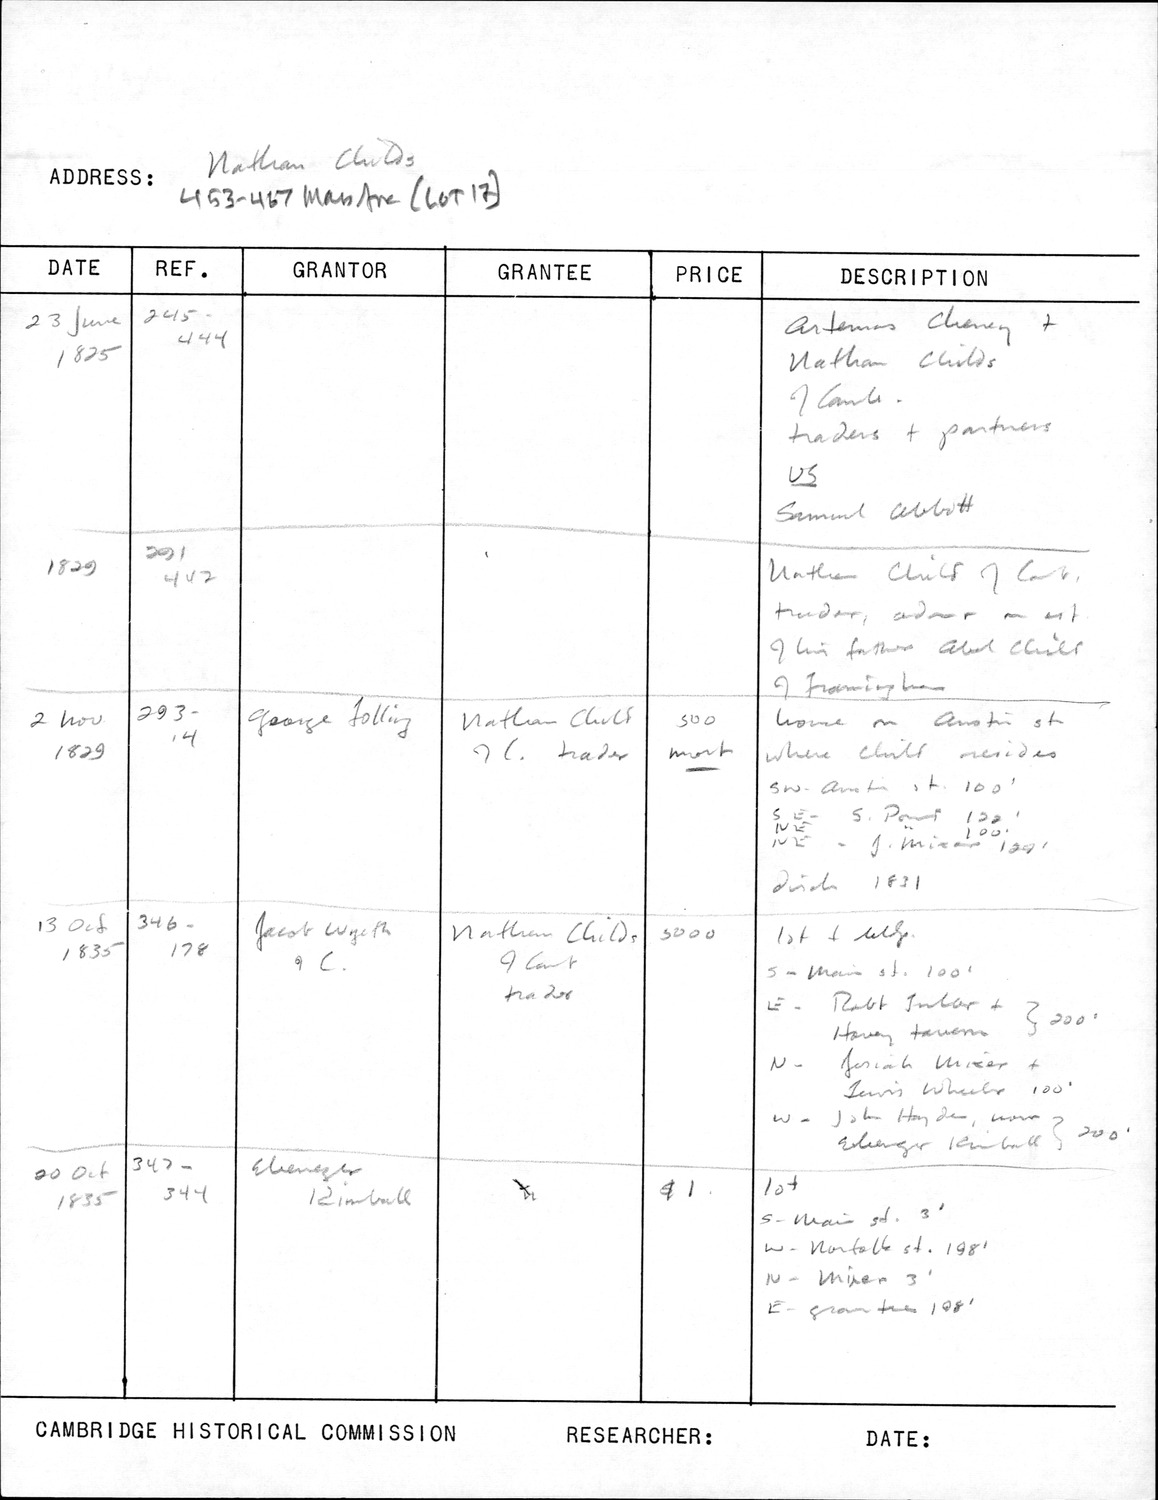 Nathan Childs
ADDRESS:
453-457 Mass Ave (Lot 17)
DATE REF. GRANTOR GRANTEE PRICE DESCRIPTION
23 June 1825
245-444
Artemas Cheney +
Nathan Childs
of Camb.
traders + partners
VS
Samuel Abbott
1829
291
447
Nathan Child of Camb.
trader, admr on est.
of his father Abel Child
of Framingham
2 Nov
1829
293-
14
George
Nathan Child
of C. trader
500
mort
house on Austin st
where Child resides
SW- Austin st. 100'
SE- S. 122'
NE 100'
NE - J. Mixer 122'
disch 1831
13 Oct
1835
346-
178
Jacob Wyeth
of C.
Nathan Childs
of Camb
trader
5000
lot + bldgs.
S- Main st. 100'
E- Robt Fuller +
Hovey tavern } 200'
N- Josiah Mixer +
Lewis Wheeler 100'
W- John Hayden, now
Ebenezer Kimball } 200'
20 Oct
1835
347-
344
Ebenezer
Kimball
$1.
lot
S- Main st. 3'
W- Norfolk st. 198'
N- Mixer 3'
E- grantee 198'
CAMBRIDGE HISTORICAL COMMISSION RESEARCHER: DATE: